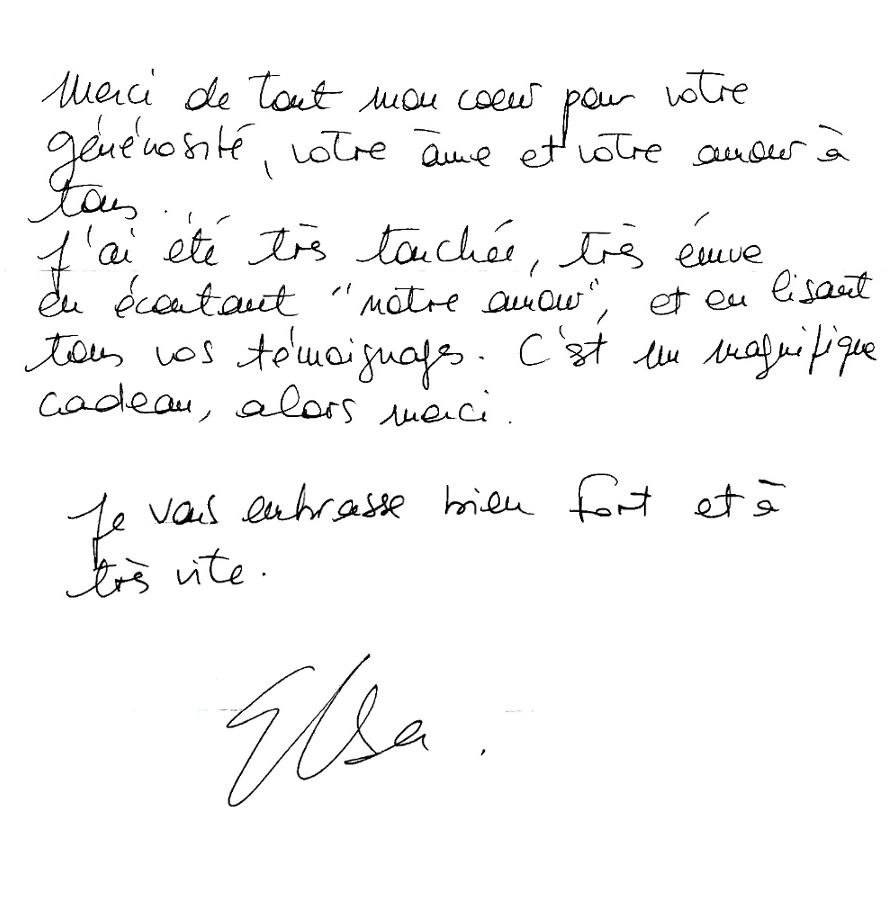 Merci de tout mon coeur pour votre
générosité, votre âme et votre amour à
tous.
J'ai été très touchée, très émue
en écoutant "notre amour", et en lisant
tous vos témoignages. C'est un magnifique
cadeau, alors merci.
Je vous embrasse bien fort et à
très vite.
Elsa.